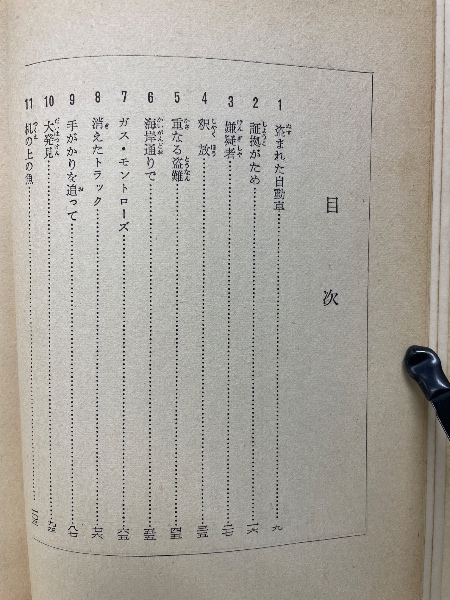 目次
1 盗まれた自動車……九
2 証拠がため……一六
3 嫌疑者……二七
4 釈放……三五
5 重なる盗難……四五
6 海岸通りで……五五
7 ガス・モントローズ……六五
8 消えたトラック……七六
9 手がかりを追って……八七
10 大発見……九五
11 机の上の魚